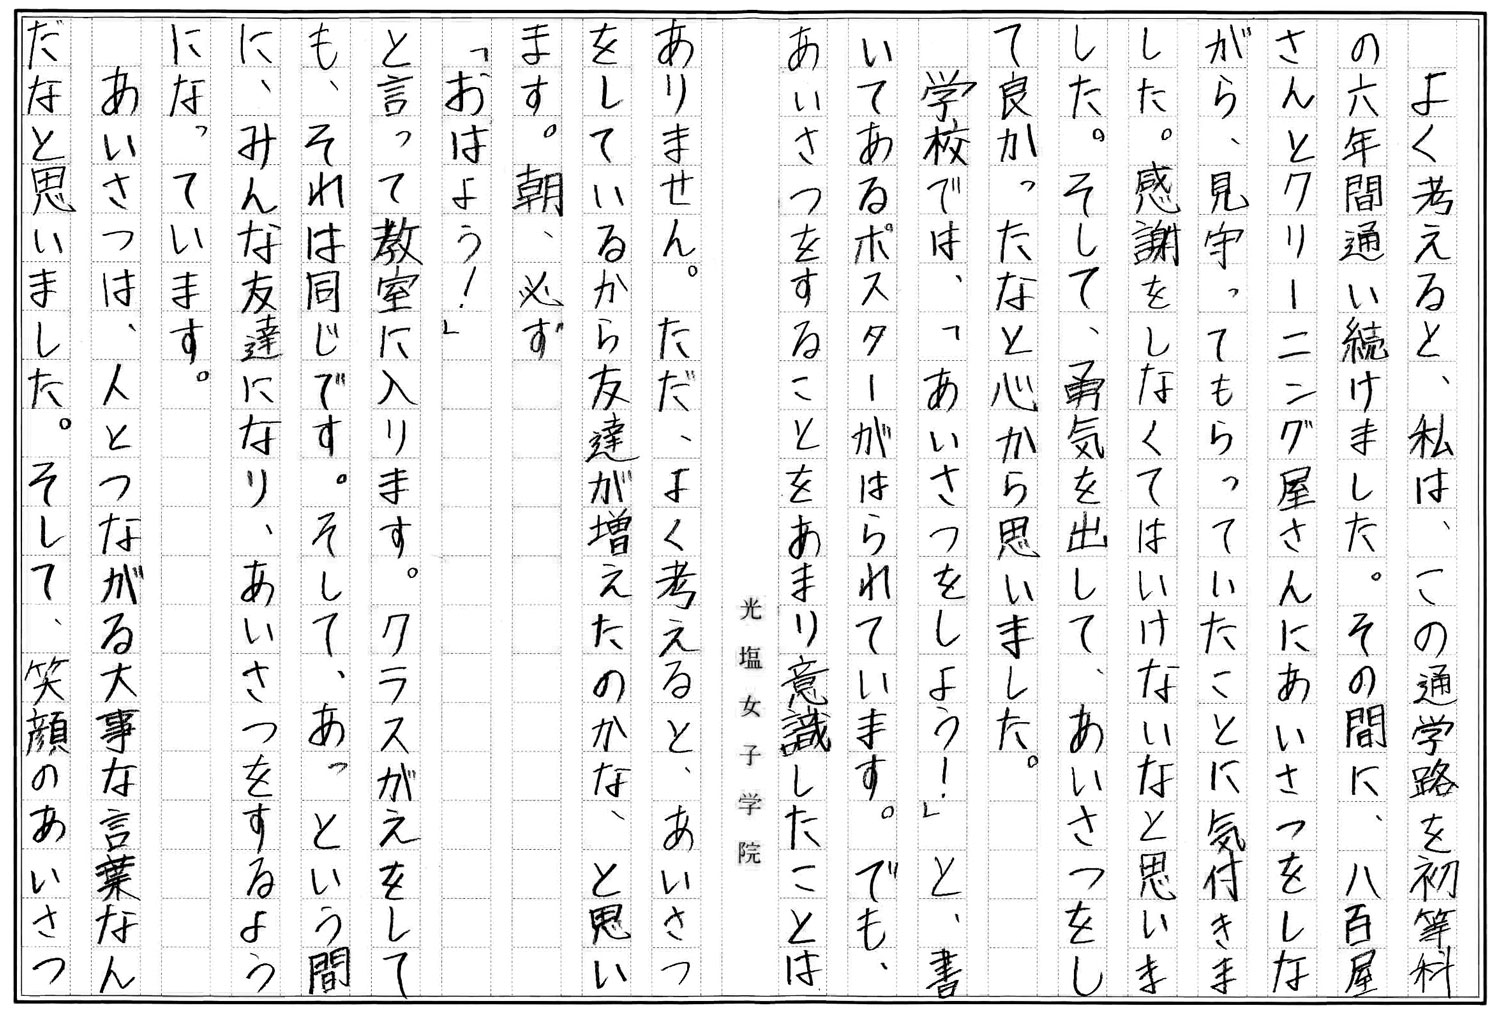 よく考えると、私は、この通学路を初等科
の六年間通い続けました。その間に、八百屋
さんとクリーニング屋さんにあいさつをしな
がら、見守ってもらっていたことに気付きま
した。感謝をしなくてはいけないなと思いま
した。そして、勇気を出して、あいさつをし
て良かったなと心から思いました。
学校では、「あいさつをしよう!」と、書
いてあるポスターがはられています。でも、
あいさつをすることをあまり意識したことは
光塩女子学院
ありません。ただ、よく考えると、あいさつ
をしているから友達が増えたのかな、と思い
ます。朝、必ず
「おはよう!」
と言って教室に入ります。クラスがえをして
も、それは同じです。そして、あっという間
に、みんな友達になり、あいさつをするよう
になっています。
あいさつは、人とつながる大事な言葉なん
だなと思いました。そして、笑顔のあいさつ